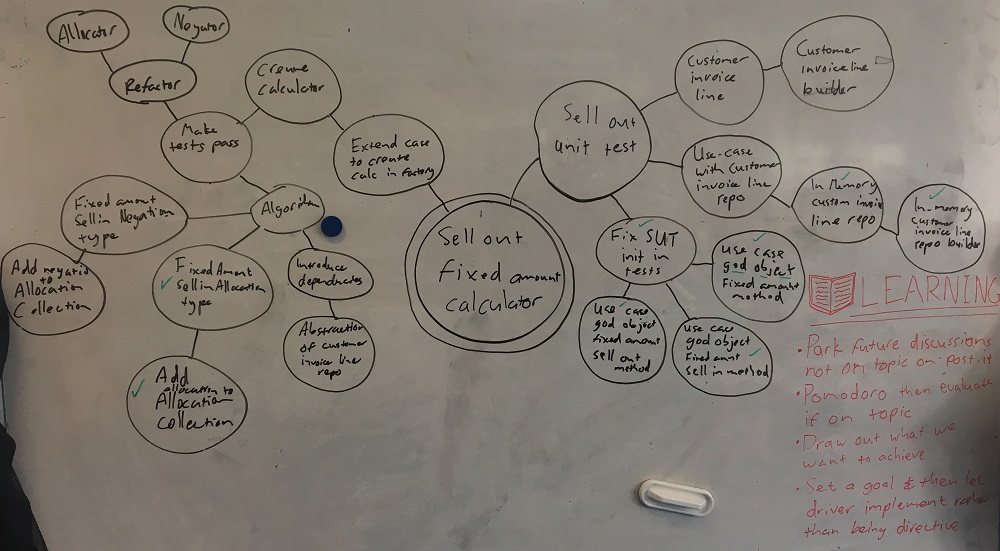 Allocator
Negator
Refactor
Create
Calculator
Make
tests pass
Extend case
to create
calc in factory
Algorithm
Fixed amount
Sell in Negation
type
Add negation
to
Allocation
Collection
Fixed Amont
Sell in Allocation
type
Add
Allocation to
Allocation
Collection
Introduce
Abstraction
of customer
invoice line
repo
Sell out
fixed amount
calculator
Sell out
unit test
Customer
invoice
line
Customer
invoice line
builder
Use-case
with customer
invoice line
repo
In Memory
custom invoice
line repo
In-memory
customer
invoice line
repo builder
Fix SUT
init in
tests
use case
god object
Fixed amount
method
use case
god object
fixed amount
sell out
method
use case
god object
Fixed amnt
sell in method
LEARNING
• Park future discussions
not on topic on post-it
• Pomodoro then evaluate
if on topic
• Draw out what we
want to achieve
• Set a goal & then let
driver implement rather
than being directive